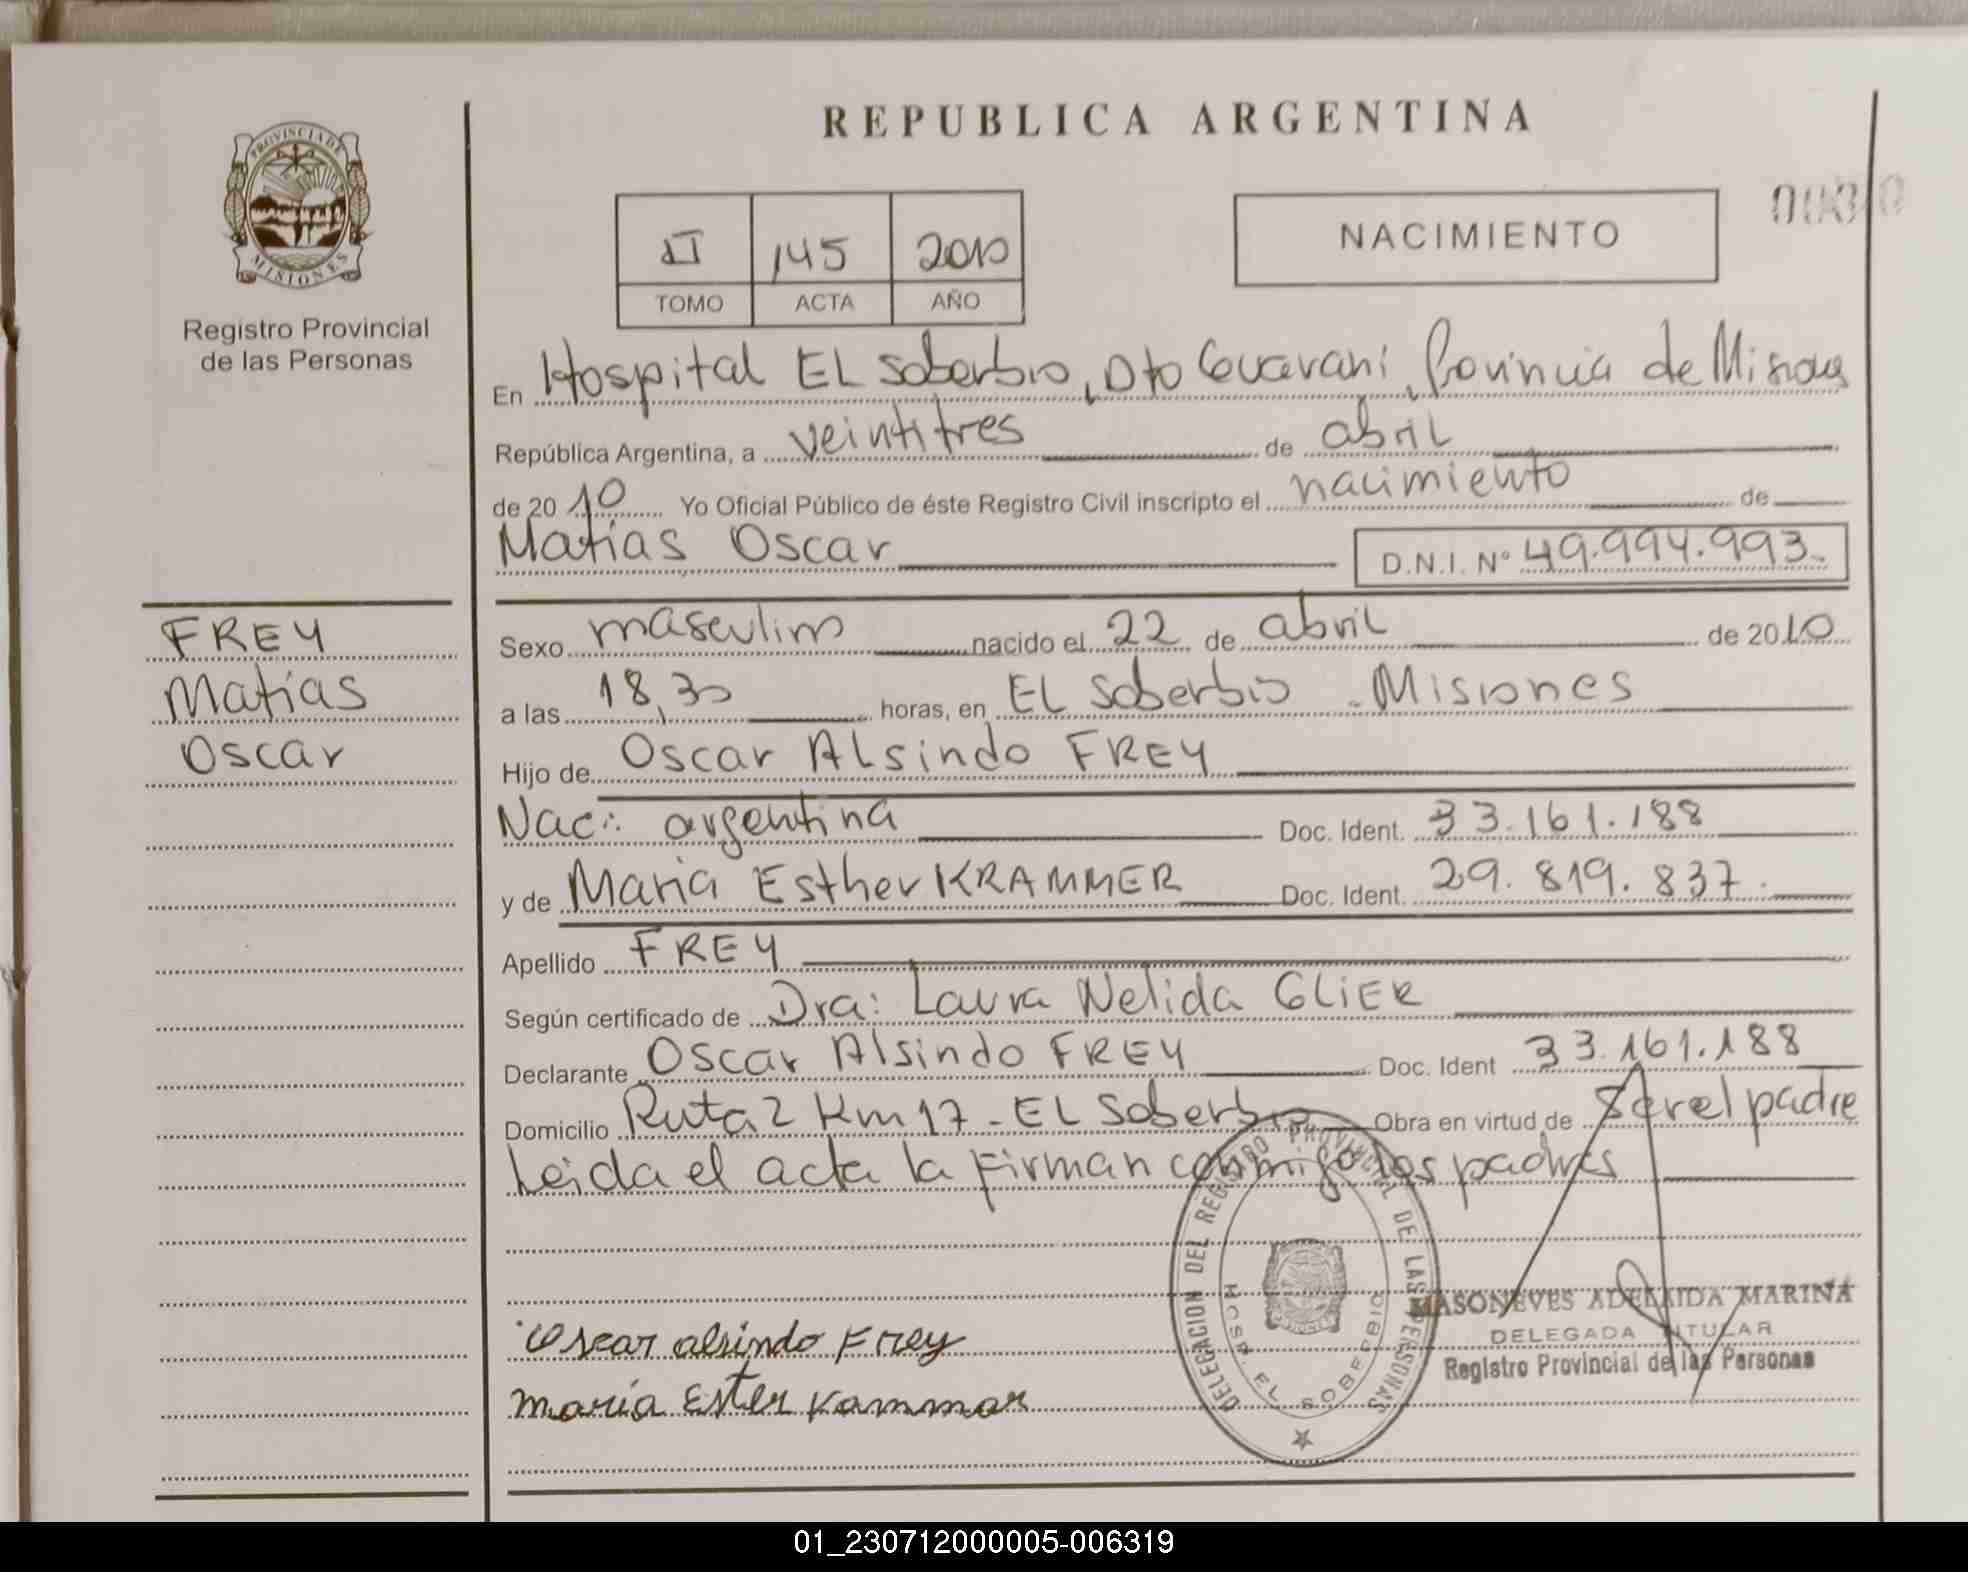 REPUBLICA ARGENTINA
PROVINCIA DE MISIONES
Registro Provincial
de las Personas
II 145 2010
TOMO ACTA AÑO
NACIMIENTO
En Hospital EL Soberbio, Dto Guarani, Provincia de Misiones
República Argentina, a veintitres de abril
de 2010 Yo Oficial Público de éste Registro Civil inscripto el nacimiento de
Matías Oscar D.N.I. Nº 49.994.993.-
FREY
Matías
Oscar
Sexo masculino nacido el 22 de abril de 2010
a las 18,30 horas, en EL Soberbio - Misiones
Hijo de Oscar ALsindo FREY
Nac: argentina Doc. Ident. 33.161.188
y de Maria Esther KRAMMER Doc. Ident. 29.819.837.-
Apellido FREY
Según certificado de Dra: Laura Nelida GLIER
Declarante Oscar Alsindo FREY Doc. Ident 33.161.188
Domicilio Ruta 2 Km 17 - EL Soberbio Obra en virtud de Ser el padre
Leida el acta la firman conmigo los padres
Oscar alsindo Frey
maria Ester Kammar
DELEGACION DEL REGISTRO PROVINCIAL DE LAS PERSONAS
HOSP. EL SOBERBIO
MASONEVES ADELAIDA MARINA
DELEGADA TITULAR
Registro Provincial de las Personas
01_230712000005-006319